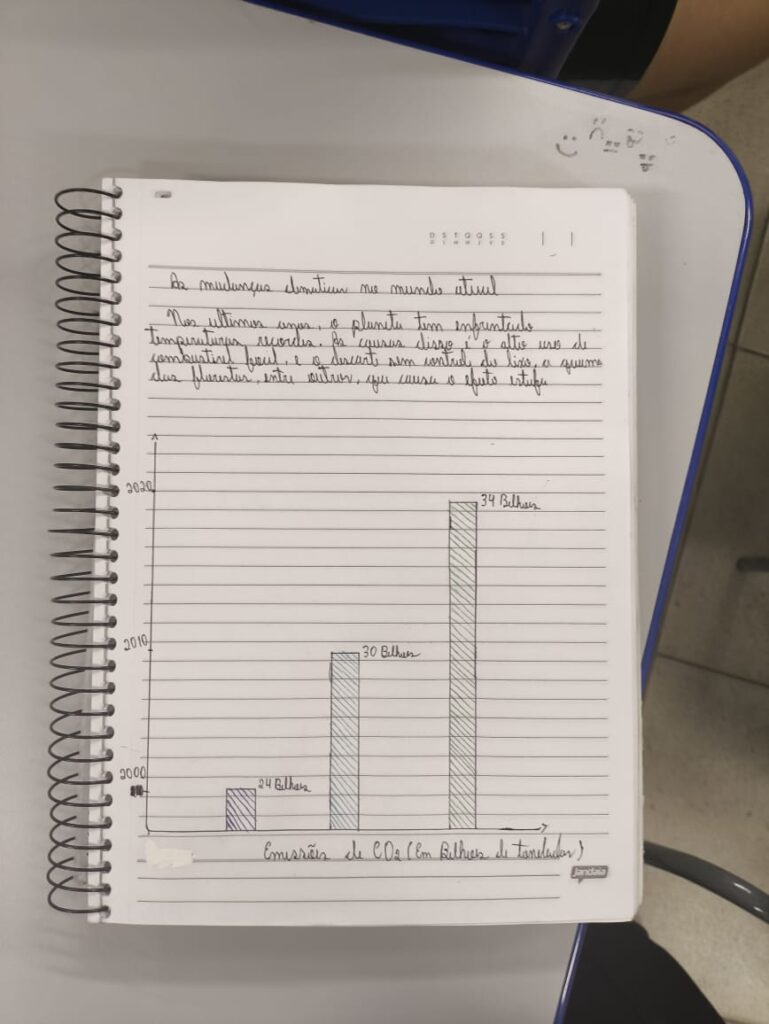 D S T Q Q S S
D L M M J V S
As mudanças climaticas no mundo atual
Nos ultimos anos, o planeta tem enfrentado
temperaturas recordes. As causas disso é o alto uso de
combustivel fossil, e o descarte sem controle do lixo, a queima
das florestas, entre outros, que causa o efeito estufa
2020
34 Bilhões
2010
30 Bilhões
2000
24 Bilhões
Emissões de CO2 (Em Bilhões de toneladas)
Jandaia